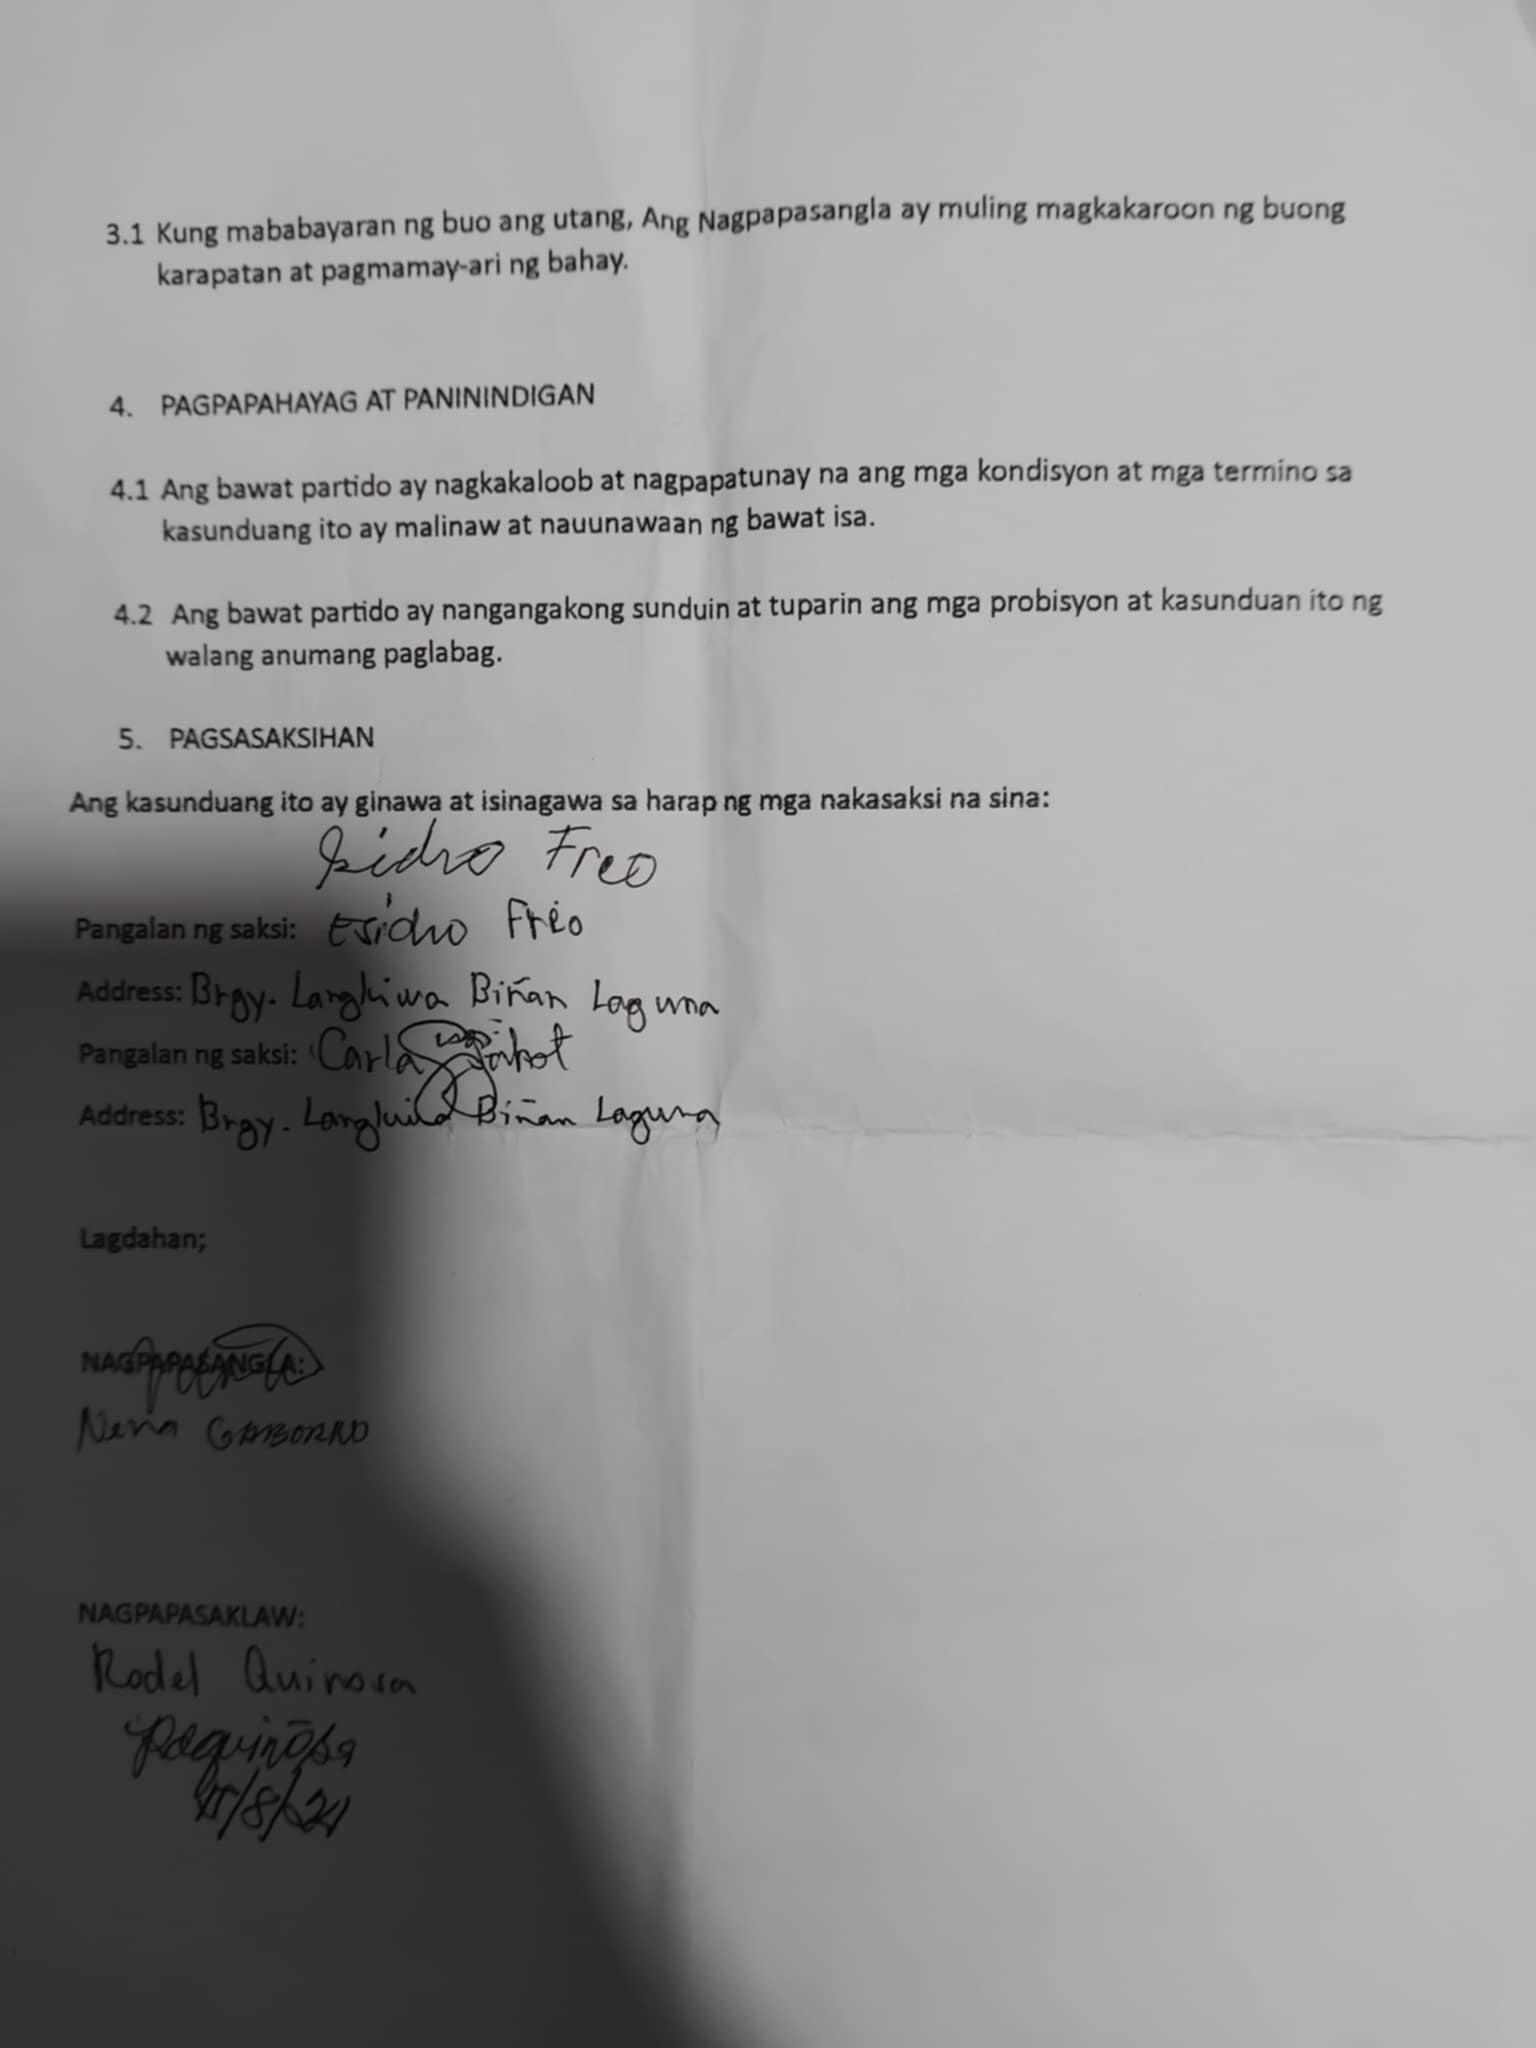 3.1 Kung mababayaran ng buo ang utang, Ang Nagpapasangla ay muling magkakaroon ng buong
karapatan at pagmamay-ari ng bahay.
4. PAGPAPAHAYAG AT PANININDIGAN
4.1 Ang bawat partido ay nagkakaloob at nagpapatunay na ang mga kondisyon at mga termino sa
kasunduang ito ay malinaw at nauunawaan ng bawat isa.
4.2 Ang bawat partido ay nangangakong sunduin at tuparin ang mga probisyon at kasunduan ito ng
walang anumang paglabag.
5. PAGSASAKSIHAN
Ang kasunduang ito ay ginawa at isinagawa sa harap ng mga nakasaksi na sina:
Freo
Pangalan ng saksi: Esidro Freo
Address: Brgy. Langkiwa Biñan Laguna
Pangalan ng saksi: Carla
Address: Brgy. Biñan Laguna
Lagdahan;
NAGPAPASANGLA:
Nena GABORNO
NAGPAPASAKLAW:
Rodel Quinosa